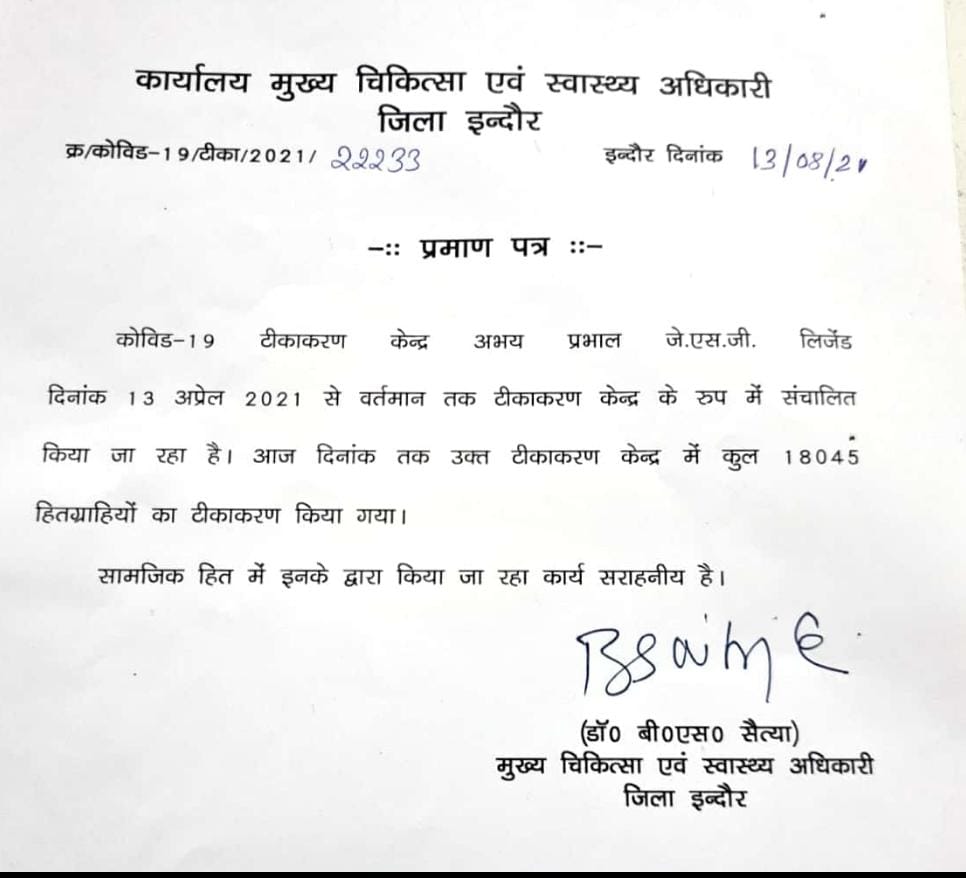 कार्यालय मुख्य चिकित्सा एवं स्वास्थ्य अधिकारी
जिला इन्दौर
क्र/कोविड-19/टीका/2021/ 22233 इन्दौर दिनांक 13/08/21
-:: प्रमाण पत्र ::-
कोविड-19 टीकाकरण केन्द्र अभय प्रभाल जे.एस.जी. लिजेंड
दिनांक 13 अप्रेल 2021 से वर्तमान तक टीकाकरण केन्द्र के रुप में संचालित
किया जा रहा है। आज दिनांक तक उक्त टीकाकरण केन्द्र में कुल 18045
हितग्राहियों का टीकाकरण किया गया।
सामजिक हित में इनके द्वारा किया जा रहा कार्य सराहनीय है।
(डॉ0 बी0एस0 सैत्या)
मुख्य चिकित्सा एवं स्वास्थ्य अधिकारी
जिला इन्दौर